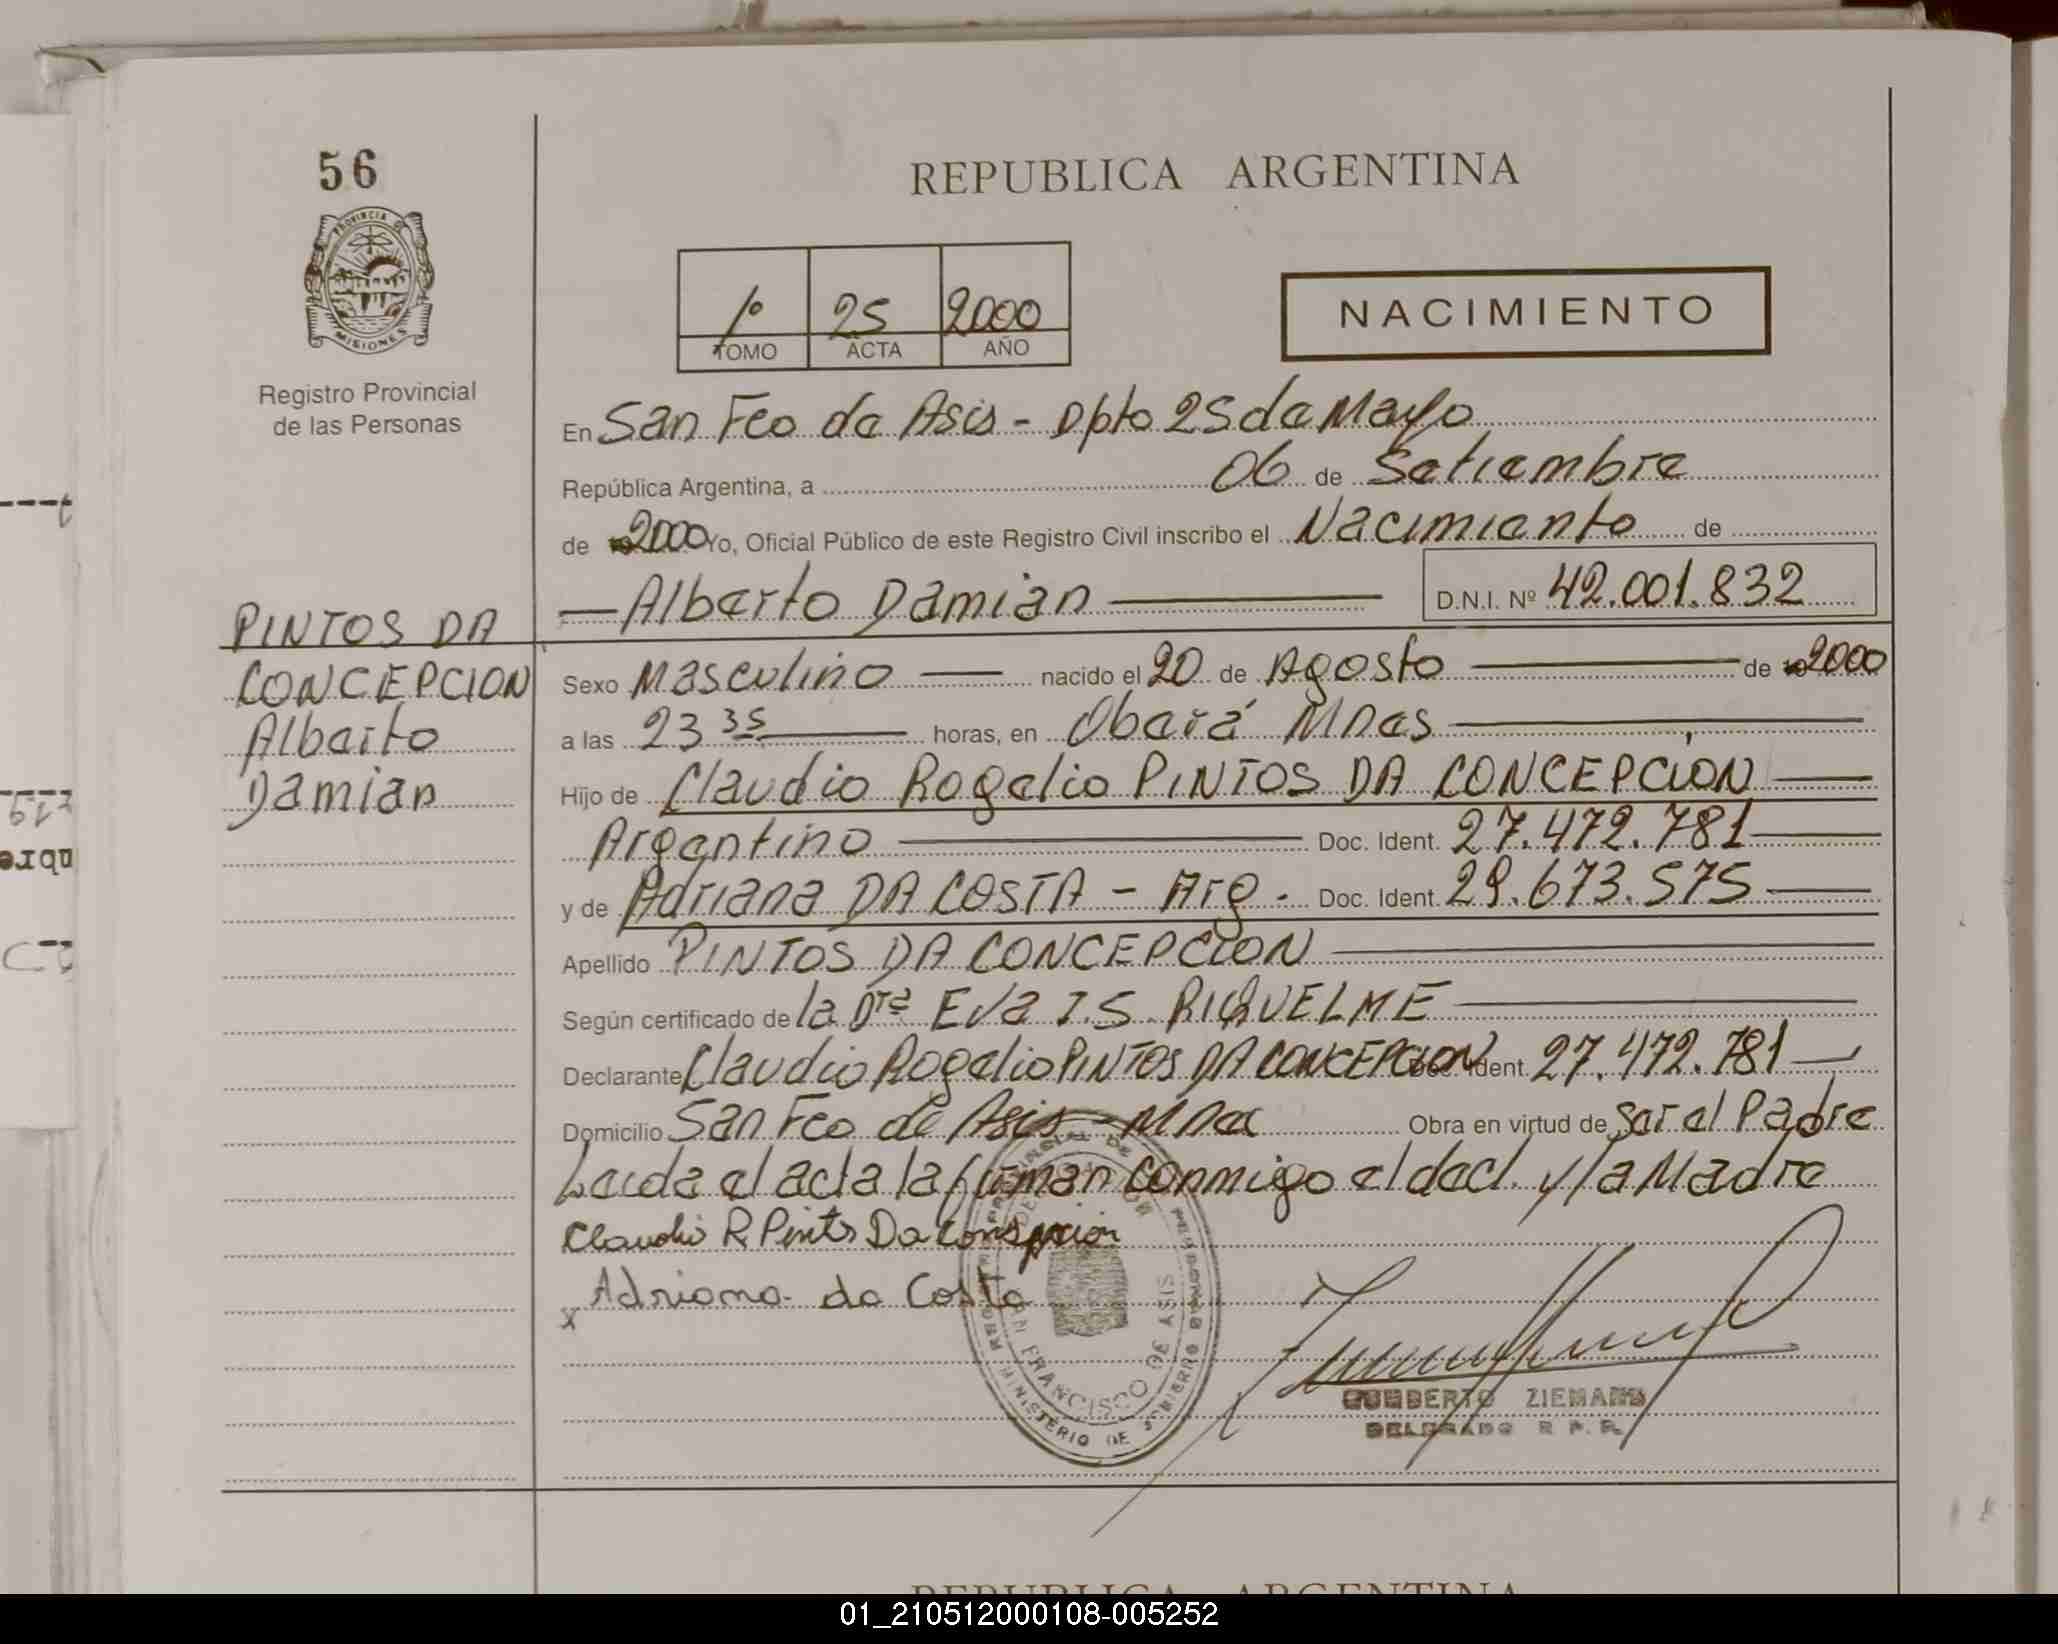 56
PROVINCIA DE
MISIONES
Registro Provincial
de las Personas
REPUBLICA ARGENTINA
1º 25 2000
TOMO ACTA AÑO
NACIMIENTO
En San Fco de Asis - Dpto 25 de Mayo
República Argentina, a 06 de Setiembre
de 2000 Yo, Oficial Público de este Registro Civil inscribo el Nacimiento de
Alberto Damian D.N.I. Nº 42.001.832
PINTOS DA
CONCEPCION
Alberto
Damian
Sexo Masculino nacido el 20 de Agosto de 2000
a las 23 35 horas, en Oberá Mnes
Hijo de Claudio Rogelio PINTOS DA CONCEPCION
Argentino Doc. Ident. 27.472.781
y de Adriana DA COSTA - Arg. Doc. Ident. 29.673.575
Apellido PINTOS DA CONCEPCION
Según certificado de la Dra Eva I.S. RIQUELME
Declarante Claudio Rogelio PINTOS DA CONCEPCION Doc. Ident. 27.472.781
Domicilio San Fco de Asis - Mnes Obra en virtud de Ser el Padre
Leida el acta la firman conmigo el decl. y la Madre
Claudio R Pintos Da Consepcion
x Adriana da Costa
FRANCISCO DE ASIS
MINISTERIO DE GOBIERNO
GUMBERTO ZIEMANN
DELEGADO R.P.P.
REPUBLICA ARGENTINA
01_210512000108-005252